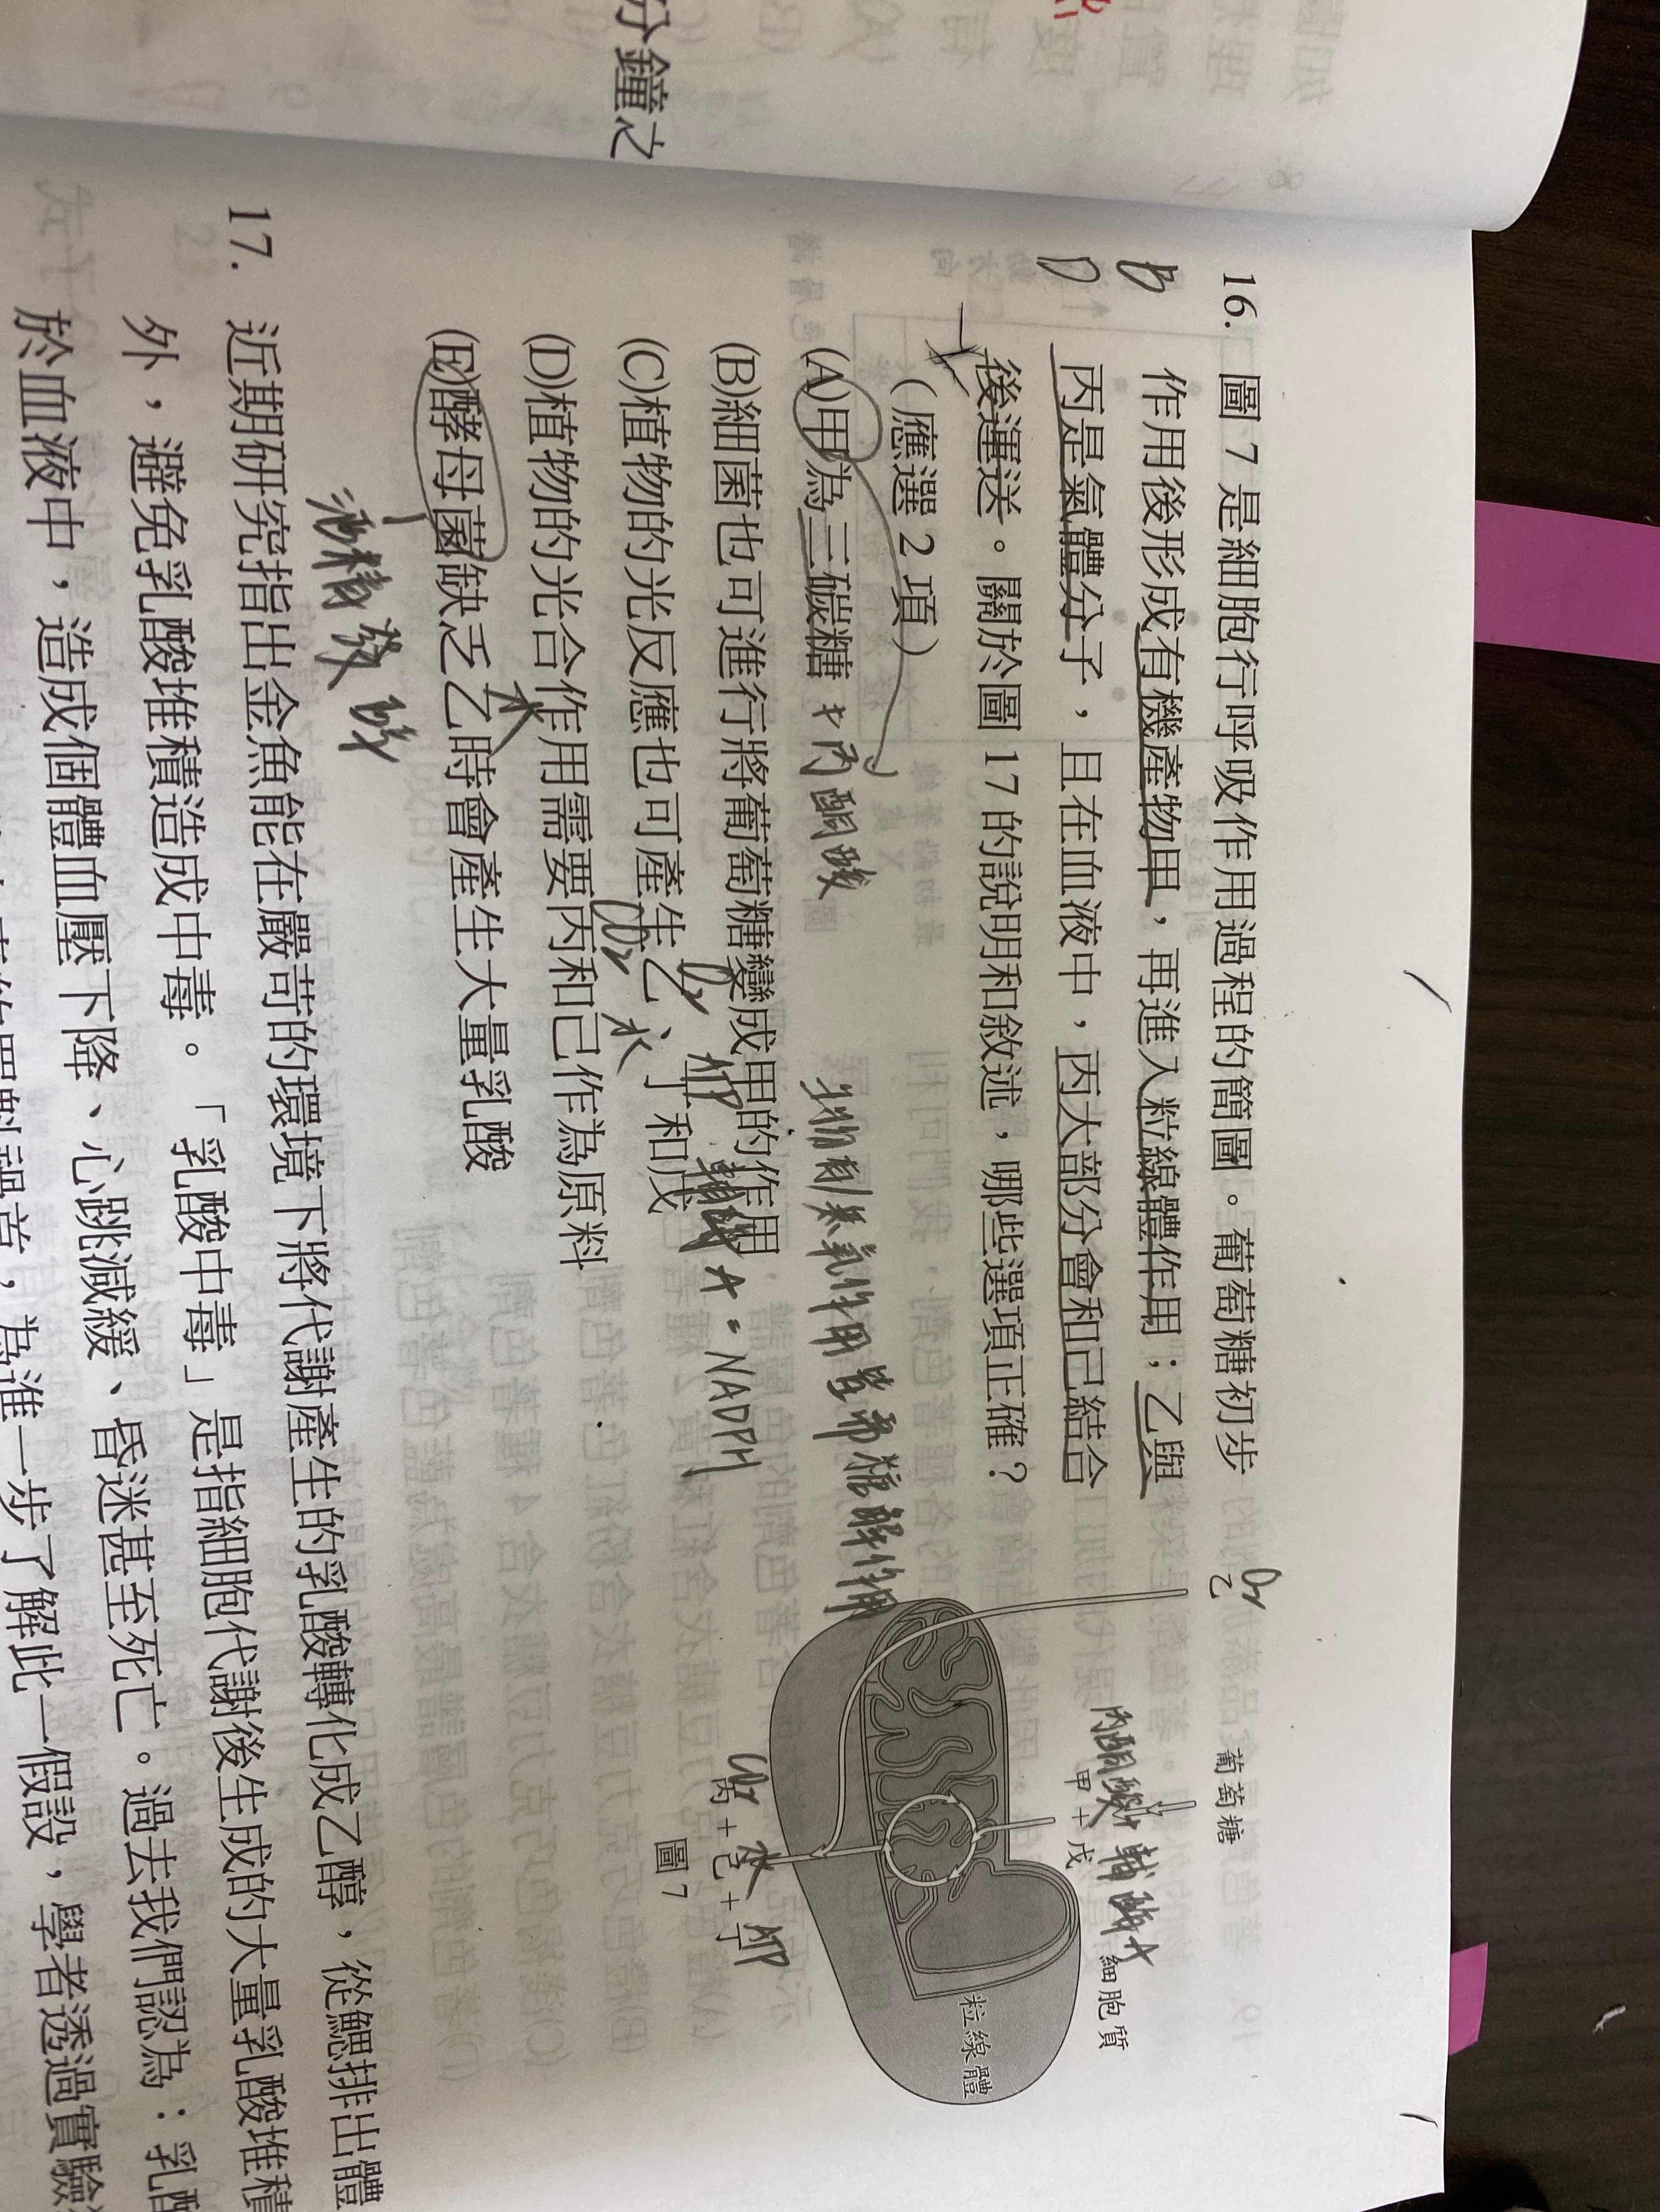 分鐘之
16. 圖 7 是細胞行呼吸作用過程的簡圖。葡萄糖初步
B
作用後形成有機產物甲，再進入粒線體作用；乙與
D
丙是氣體分子，且在血液中，丙大部分會和己結合
後運送。關於圖 17 的說明和敘述，哪些選項正確？
（應選 2 項）
(A)甲為三碳糖
丙酮酸
生物有/無氧作用皆需糖解作用
(B)細菌也可進行將葡萄糖變成甲的作用
O₂ ATP 輔酶 A = NADPH
(C)植物的光反應也可產生乙、丁和戊
CO₂ 水
(D)植物的光合作用需要丙和己作為原料
(E)酵母菌缺乏乙時會產生大量乳酸
酒精發酵
O₂
乙
葡萄糖
丙酮酸 輔酶A
甲 + 戊
細胞質
粒線體
CO₂ 水 ATP
丙 + 己 + 丁
圖 7
17. 近期研究指出金魚能在嚴苛的環境下將代謝產生的乳酸轉化成乙醇，從鰓排出體
外，避免乳酸堆積造成中毒。「乳酸中毒」是指細胞代謝後生成的大量乳酸堆積
於血液中，造成個體血壓下降、心跳減緩、昏迷甚至死亡。過去我們認為：乳酸
為進一步了解此一假設，學者透過實驗